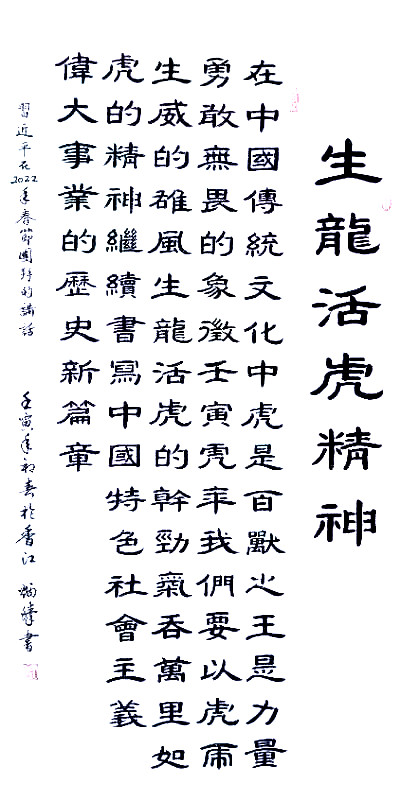 生龍活虎精神
在中國傳統文化中虎是百獸之王是力量
勇敢無畏的象徵壬寅虎年我們要以虎虎
生威的雄風生龍活虎的幹勁氣吞萬里如
虎的精神繼續書寫中國特色社會主義
偉大事業的歷史新篇章
習近平在2022年春節團拜的講話 壬寅年初春於香江 書